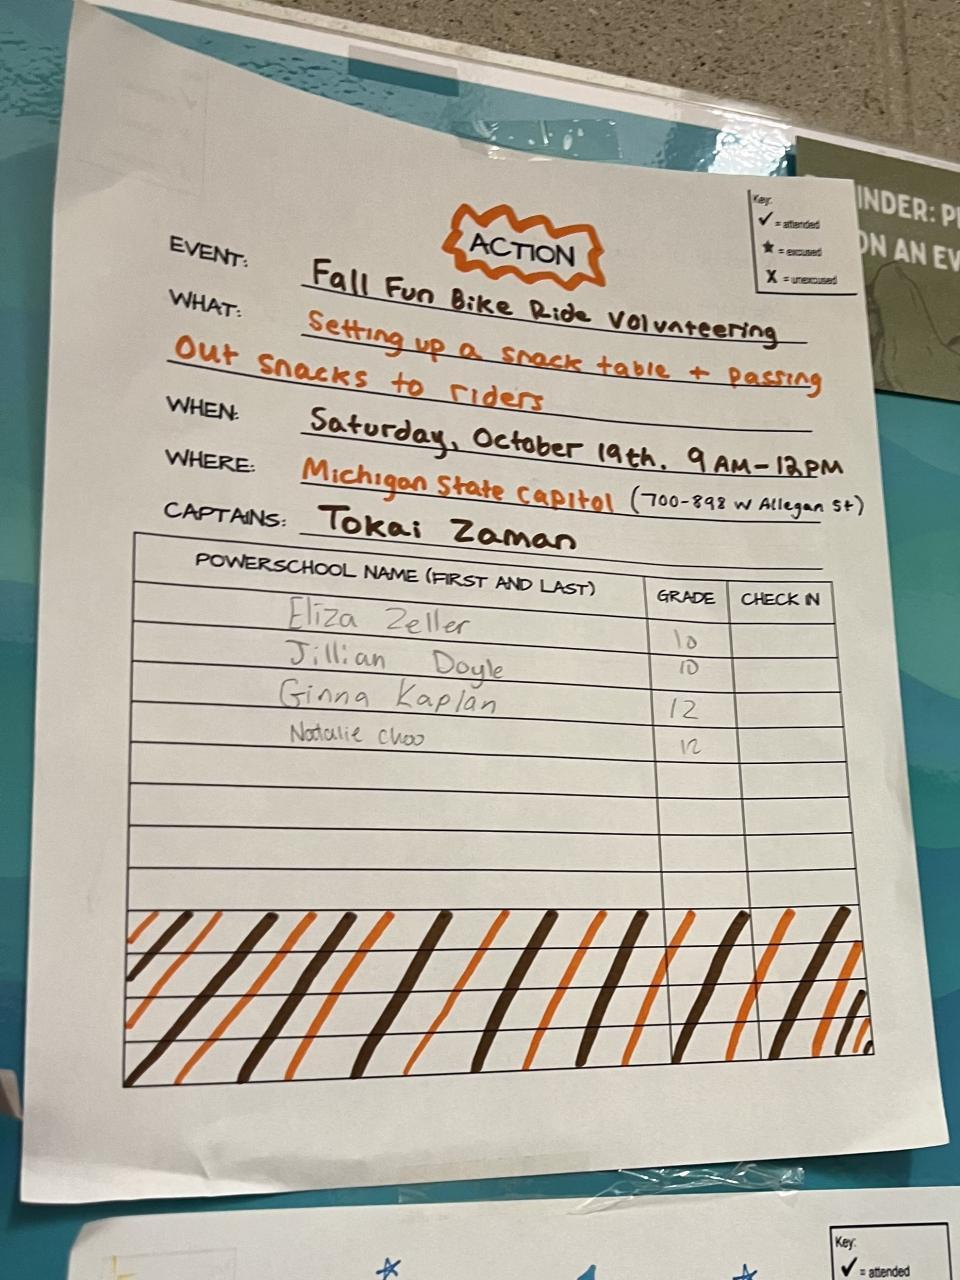 INDER: P
ON AN EV
Key:
✓ = attended
★ = excused
X = unexcused
ACTION
EVENT: Fall Fun Bike Ride Volunteering
WHAT: Setting up a snack table + passing
out snacks to riders
WHEN: Saturday, October 19th. 9 AM-12PM
WHERE: Michigan State Capitol (700-898 W Allegan St)
CAPTAINS: Tokai Zaman
POWERSCHOOL NAME (FIRST AND LAST) GRADE CHECK IN
Eliza Zeller 10
Jillian Doyle 10
Ginna Kaplan 12
Natalie Choo 12
Key:
✓ = attended